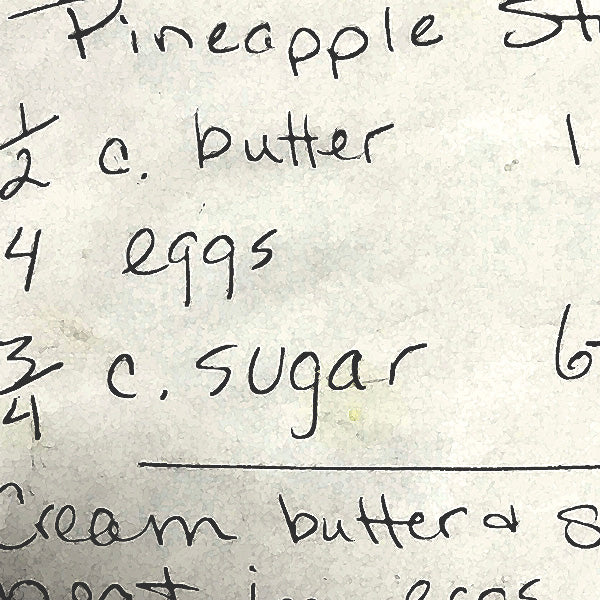 Pineapple St
1/2 c. butter 1
4 eggs
3/4 c. sugar 6
Cream butter & s
beat in eggs